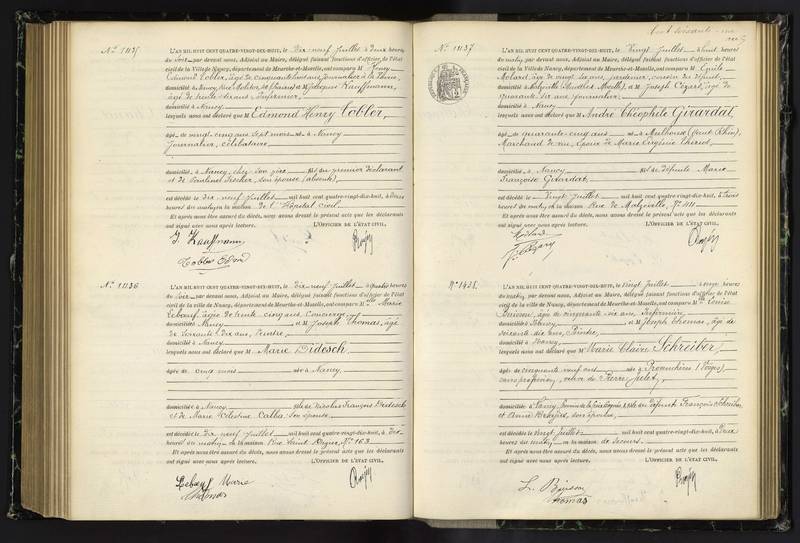 N° 1135
L'AN MIL HUIT CENT QUATRE-VINGT-DIX-HUIT, le Dix-neuf Juillet à deux heures
du Soir par devant nous, Adjoint au Maire, délégué faisant fonctions d'officier de l'état
civil de la Ville de Nancy, département de Meurthe-et-Moselle, ont comparu M. Henry
Edmond Tobler, âgé de cinquante huit ans, journalier
domicilié à Nancy, et M. Jacques Kauffmann,
âgé de trente ans, Infirmier,
domicilié à Nancy
lesquels nous ont déclaré que M. Edmond Henry Tobler,
âgé de vingt-cinq ans sept mois né à Nancy
Journalier, célibataire,
domicilié à Nancy, chez son père fils du premier déclarant
et de Fischer, son épouse (absente)
est décédé le dix neuf Juillet mil huit cent quatre-vingt-dix-huit, à
heures du matin, en la maison de l'Hôpital civil
Et après nous être assuré du décès, nous avons dressé le présent acte que les déclarants
ont signé avec nous après lecture. L'OFFICIER DE L'ÉTAT CIVIL,
J. Kauffmann
Tobler
N° 1136
L'AN MIL HUIT CENT QUATRE-VINGT-DIX-HUIT, le Dix-neuf Juillet à quatre heures
du Soir par devant nous, Adjoint au Maire, délégué faisant fonctions d'officier de l'état
civil de la Ville de Nancy, département de Meurthe-et-Moselle, ont comparu Mlle Marie
Leboeuf, âgée de trente cinq ans, Concierge,
domiciliée à Nancy et M. Joseph Thomas, âgé
de soixante-dix ans, Peintre,
domicilié à Nancy
lesquels nous ont déclaré que M. Marie Didesch,
âgée de cinq mois née à Nancy
domiciliée à Nancy fille de Nicolas François Didesch
et de Marie Célestine Calba son épouse
est décédée le dix neuf Juillet mil huit cent quatre-vingt-dix-huit, à dix
heures du matin, en la maison Rue Saint N° 163
Et après nous être assuré du décès, nous avons dressé le présent acte que les déclarants
ont signé avec nous après lecture. L'OFFICIER DE L'ÉTAT CIVIL,
Leboeuf Marie
Thomas
N° 1137
L'AN MIL HUIT CENT QUATRE-VINGT-DIX-HUIT, le Vingt Juillet à huit heures
du matin, par devant nous, Adjoint au Maire, délégué faisant fonctions d'officier de l'état
civil de la Ville de Nancy, département de Meurthe-et-Moselle, ont comparu M. Emile
Molard, âgé de vingt six ans, jardinier, cousin du défunt,
domicilié à Malzéville (Meurthe et Moselle), et M. Joseph Cézard, âgé de
ans, journalier,
domicilié à Nancy
lesquels nous ont déclaré que M. André Théophile Girardat,
âgé de quarante-cinq ans né à Mulhouse (Haut Rhin),
Marchand de vin, époux de Marie Virginie
domicilié à Nancy fils de défunte Marie
Françoise Girardat
est décédé le Vingt Juillet mil huit cent quatre-vingt-dix-huit, à trois
heures du matin, en la maison Rue de Malzéville, N° 111
Et après nous être assuré du décès, nous avons dressé le présent acte que les déclarants
ont signé avec nous après lecture. L'OFFICIER DE L'ÉTAT CIVIL,
Molard
N° 1138
L'AN MIL HUIT CENT QUATRE-VINGT-DIX-HUIT, le Vingt Juillet à onze heures
du matin, par devant nous, Adjoint au Maire, délégué faisant fonctions d'officier de l'état
civil de la Ville de Nancy, département de Meurthe-et-Moselle, ont comparu M. Louise
Buisson, âgée de cinquante six ans, Infirmière,
domiciliée à Nancy et M. Joseph Thomas, âgé de
soixante dix ans, Peintre,
domicilié à Nancy,
lesquels nous ont déclaré que M. Marie Claire Schreiber,
âgée de cinquante neuf ans née à (Vosges)
sans profession, veuve de Pierre
domiciliée à Nancy, fille des défunts François Schreiber
et Anne son épouse,
est décédée le Vingt Juillet mil huit cent quatre-vingt-dix-huit, à deux
heures du matin, en la maison de Secours
Et après nous être assuré du décès, nous avons dressé le présent acte que les déclarants
ont signé avec nous après lecture. L'OFFICIER DE L'ÉTAT CIVIL,
L. Buisson
Thomas